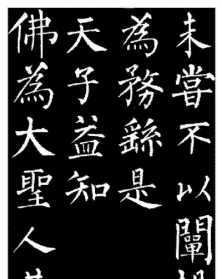 未嘗不以闡
為務繇是
天子益知
佛為大聖人